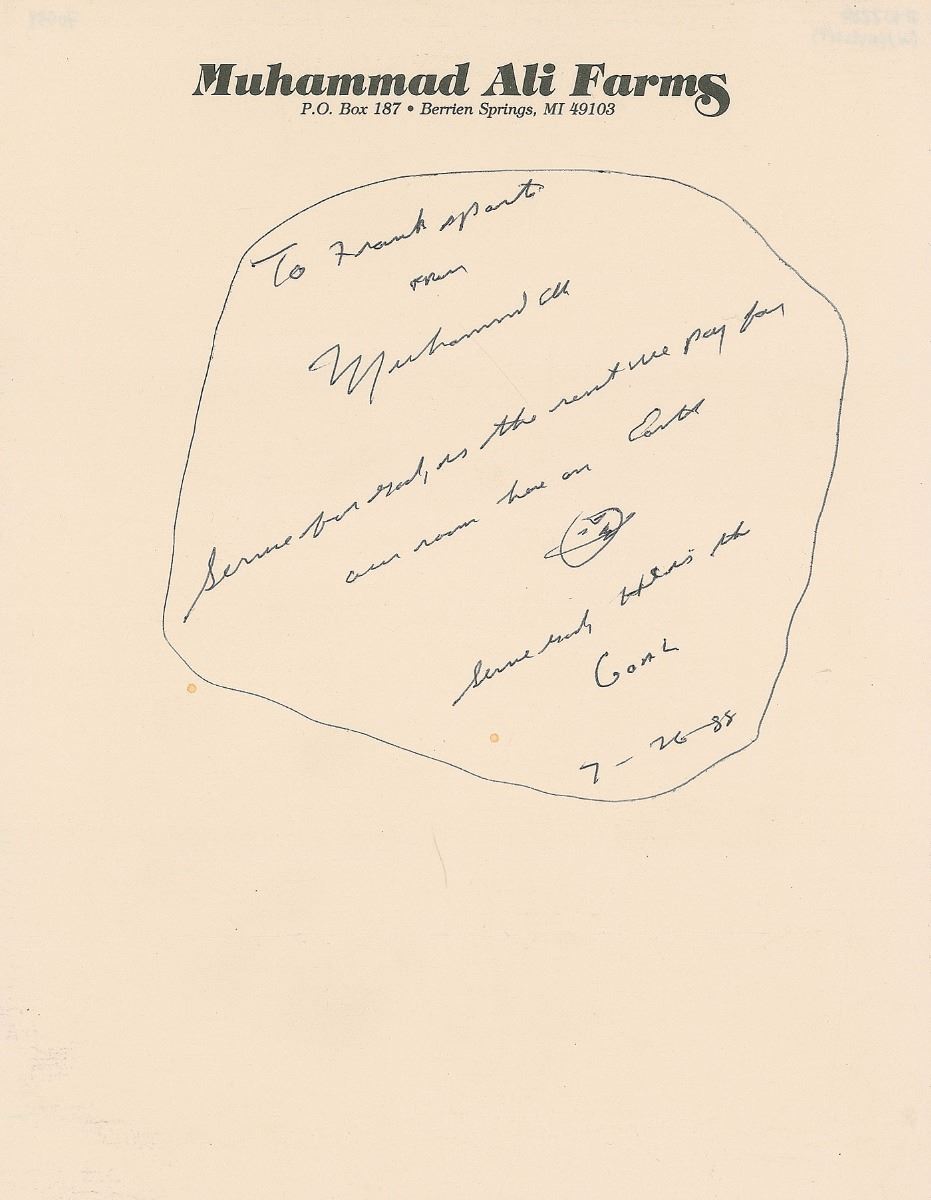 Muhammad Ali Farms
P.O. Box 187 • Berrien Springs, MI 49103
To Frank
from
Muhammad Ali
Service for God, is the rent we pay for
our room here on Earth
Serve God, He is the
GOAL
7-26-88